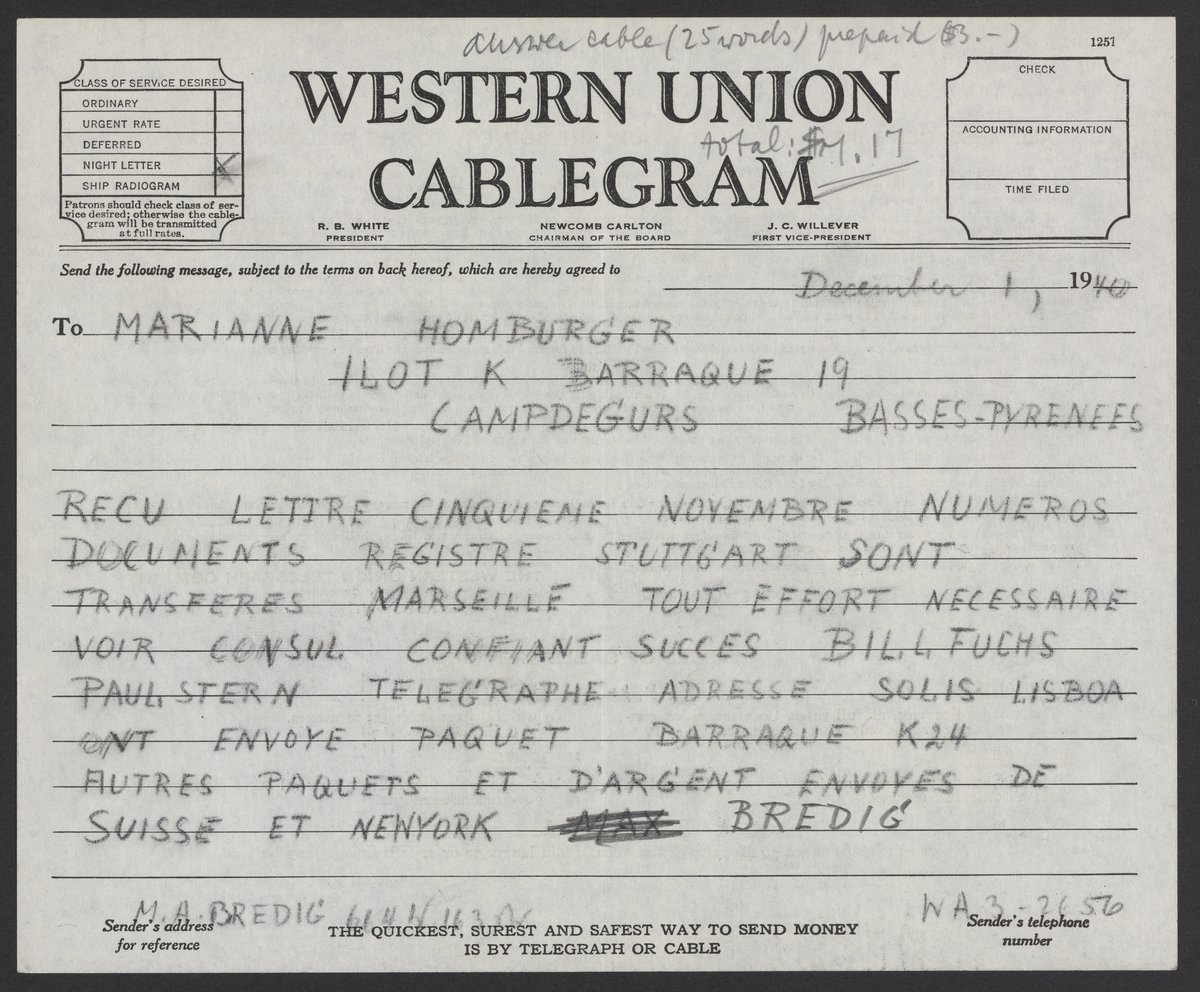 answer cable (25 words) prepaid ($3.-)
1251
CLASS OF SERVICE DESIRED
ORDINARY
URGENT RATE
DEFERRED
NIGHT LETTER X
SHIP RADIOGRAM
Patrons should check class of ser-
vice desired; otherwise the cable-
gram will be transmitted
at full rates.
WESTERN UNION
total: .17
CABLEGRAM
R. B. WHITE
PRESIDENT
NEWCOMB CARLTON
CHAIRMAN OF THE BOARD
J. C. WILLEVER
FIRST VICE-PRESIDENT
CHECK
ACCOUNTING INFORMATION
TIME FILED
Send the following message, subject to the terms on back hereof, which are hereby agreed to
December 1, 1940
To MARIANNE HOMBURGER
ILOT K BARRAQUE 19
CAMPDEGURS BASSES-PYRENEES
RECU LETTRE CINQUIEME NOVEMBRE NUMEROS
DOCUMENTS REGISTRE STUTTGART SONT
TRANSFERES MARSEILLE TOUT EFFORT NECESSAIRE
VOIR CONSUL CONFIANT SUCCES BILL FUCHS
PAUL STERN TELEGRAPHE ADRESSE SOLIS LISBOA
ONT ENVOYE PAQUET BARRAQUE K24
AUTRES PAQUETS ET D'ARGENT ENVOYES DE
SUISSE ET NEWYORK MAX BREDIG
M.A. BREDIG 614 N. 163
WA 3-2656
Sender's address
for reference
THE QUICKEST, SUREST AND SAFEST WAY TO SEND MONEY
IS BY TELEGRAPH OR CABLE
Sender's telephone
number